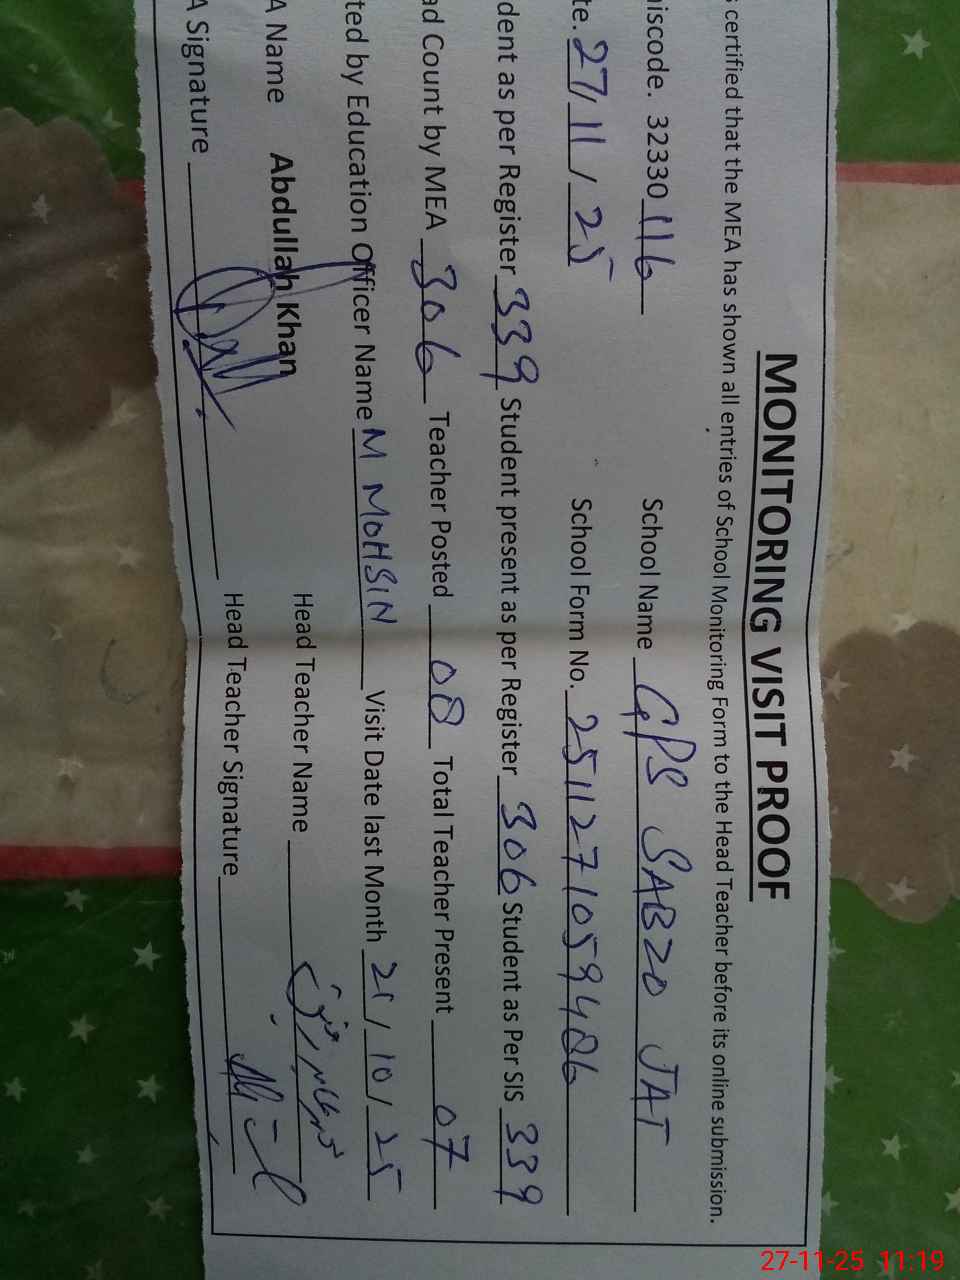 MONITORING VISIT PROOF
certified that the MEA has shown all entries of School Monitoring Form to the Head Teacher before its online submission.
iscode. 32330116 School Name GPS SABZO JAT
te. 27/11/25 School Form No. 251127105948
dent as per Register 339 Student present as per Register 306 Student as Per SIS 339
ad Count by MEA 306 Teacher Posted 08 Total Teacher Present 07
ted by Education Officer Name M MOHSIN Visit Date last Month 21/10/25
A Name Abdullah Khan Head Teacher Name
A Signature Head Teacher Signature
27-11-25 11:19